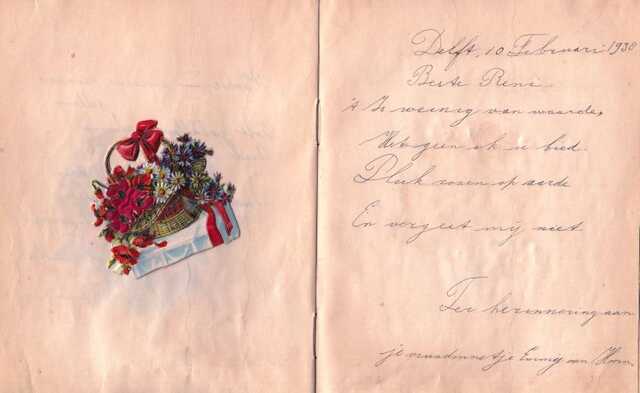 Delft, 10 Februari 1930
Beste Reni
't Is weinig van waarde,
Hetgeen ik u bied
Pluk rozen op aarde
En vergeet mij niet
Ter herinnering aan
je vriendinnetje van Hoorn.